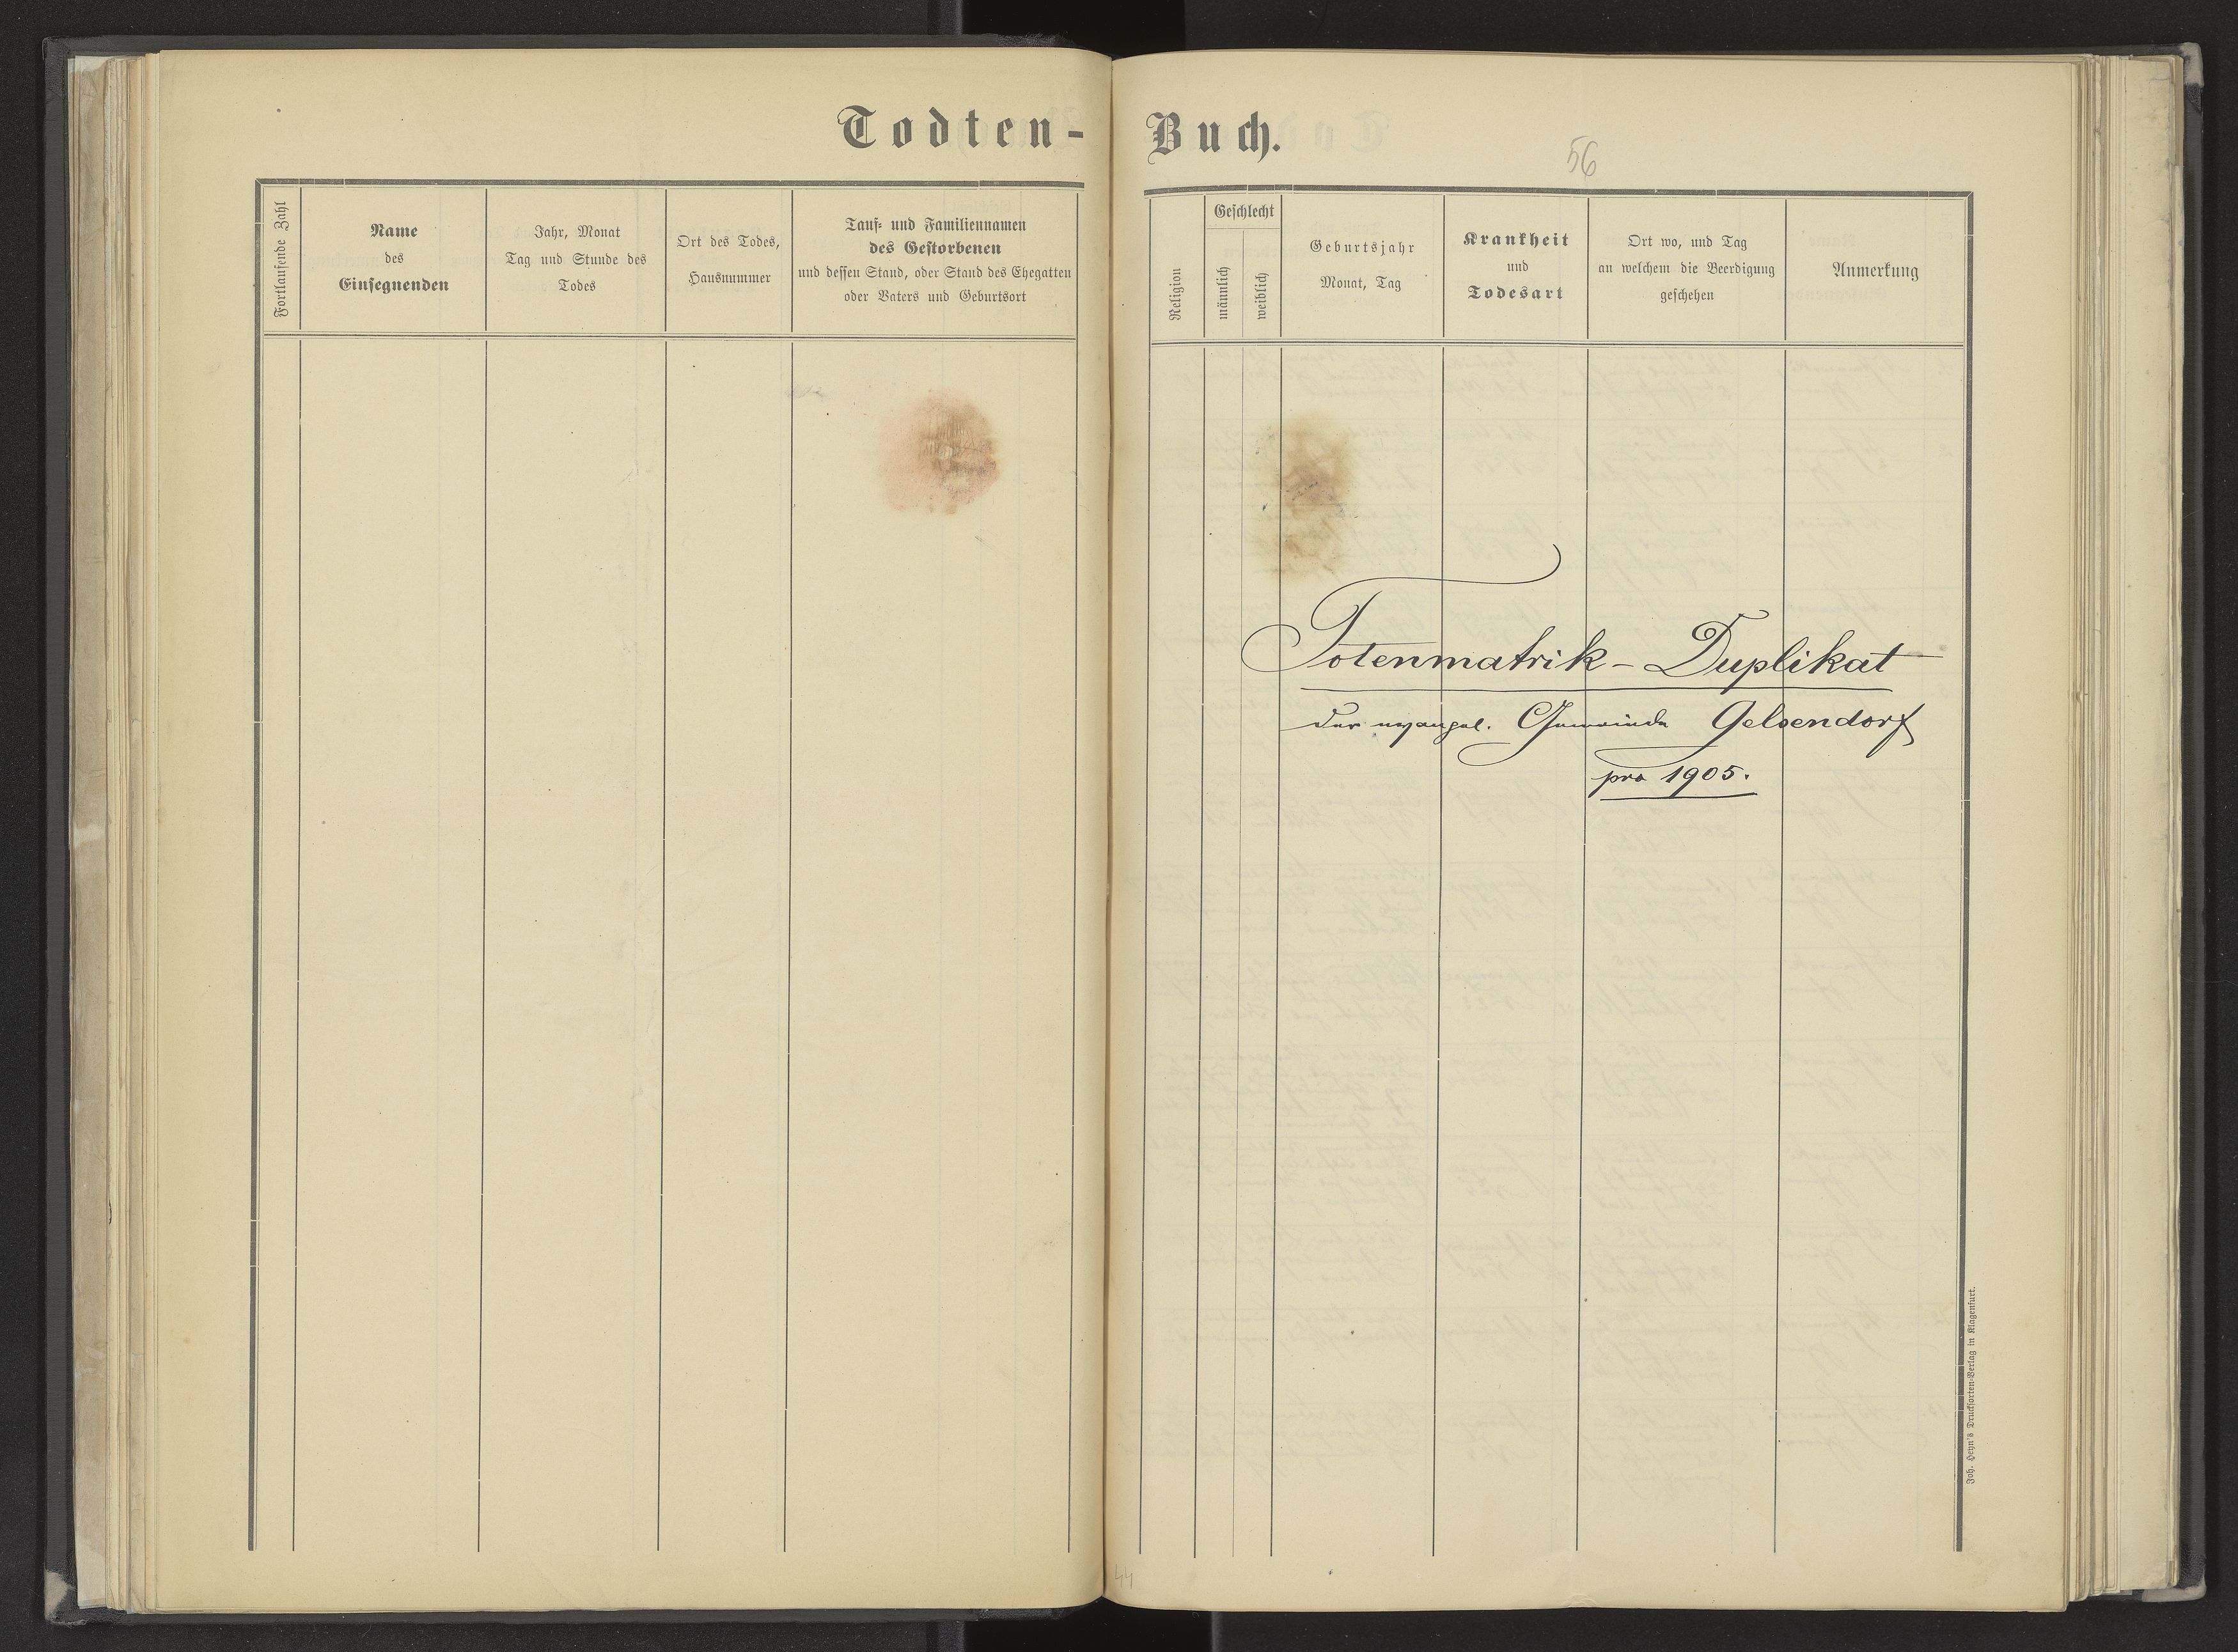 Todten-
Fortlaufende Zahl
Name
des
Einsegnenden
Jahr, Monat
Tag und Stunde des
Todes
Ort des Todes,
Hausnummer
Tauf- und Familiennamen
des Gestorbenen
und dessen Stand, oder Stand des Ehegatten
oder Vaters und Geburtsort
Buch.
56
Religion
Geschlecht
männlich
weiblich
Geburtsjahr
Monat, Tag
Krankheit
und
Todesart
Ort wo, und Tag
an welchem die Beerdigung
geschehen
Anmerkung
Totenmatrik - Duplikat
der evangel. Gemeinde Gelsendorf
pro 1905.
Joh. Heyn's Drucksorten-Verlag in Klagenfurt.
44